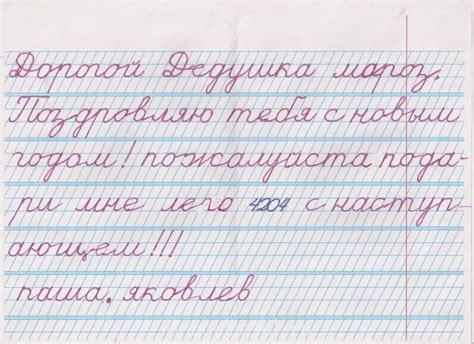 Дорогой Дедушка мороз.
Поздровляю тебя с новым
годом! пожалуйста пода-
ри мне лего 4204 с наступ-
ающем!!!
паша. яковлев